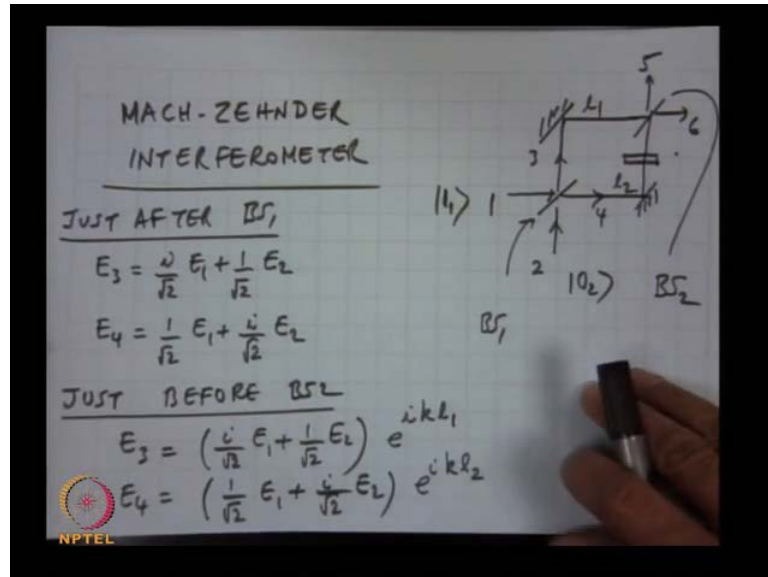 MACH-ZEHNDER
INTERFEROMETER
JUST AFTER BS₁
E₃ = i/√2 E₁ + 1/√2 E₂
E₄ = 1/√2 E₁ + i/√2 E₂
JUST BEFORE BS2
E₃ = (i/√2 E₁ + 1/√2 E₂) e^{ikl₁}
E₄ = (1/√2 E₁ + i/√2 E₂) e^{ikl₂}
5
l₁
6
3
l₂
|1₁⟩ 1
4
2 |0₂⟩ BS₂
BS₁
NPTEL